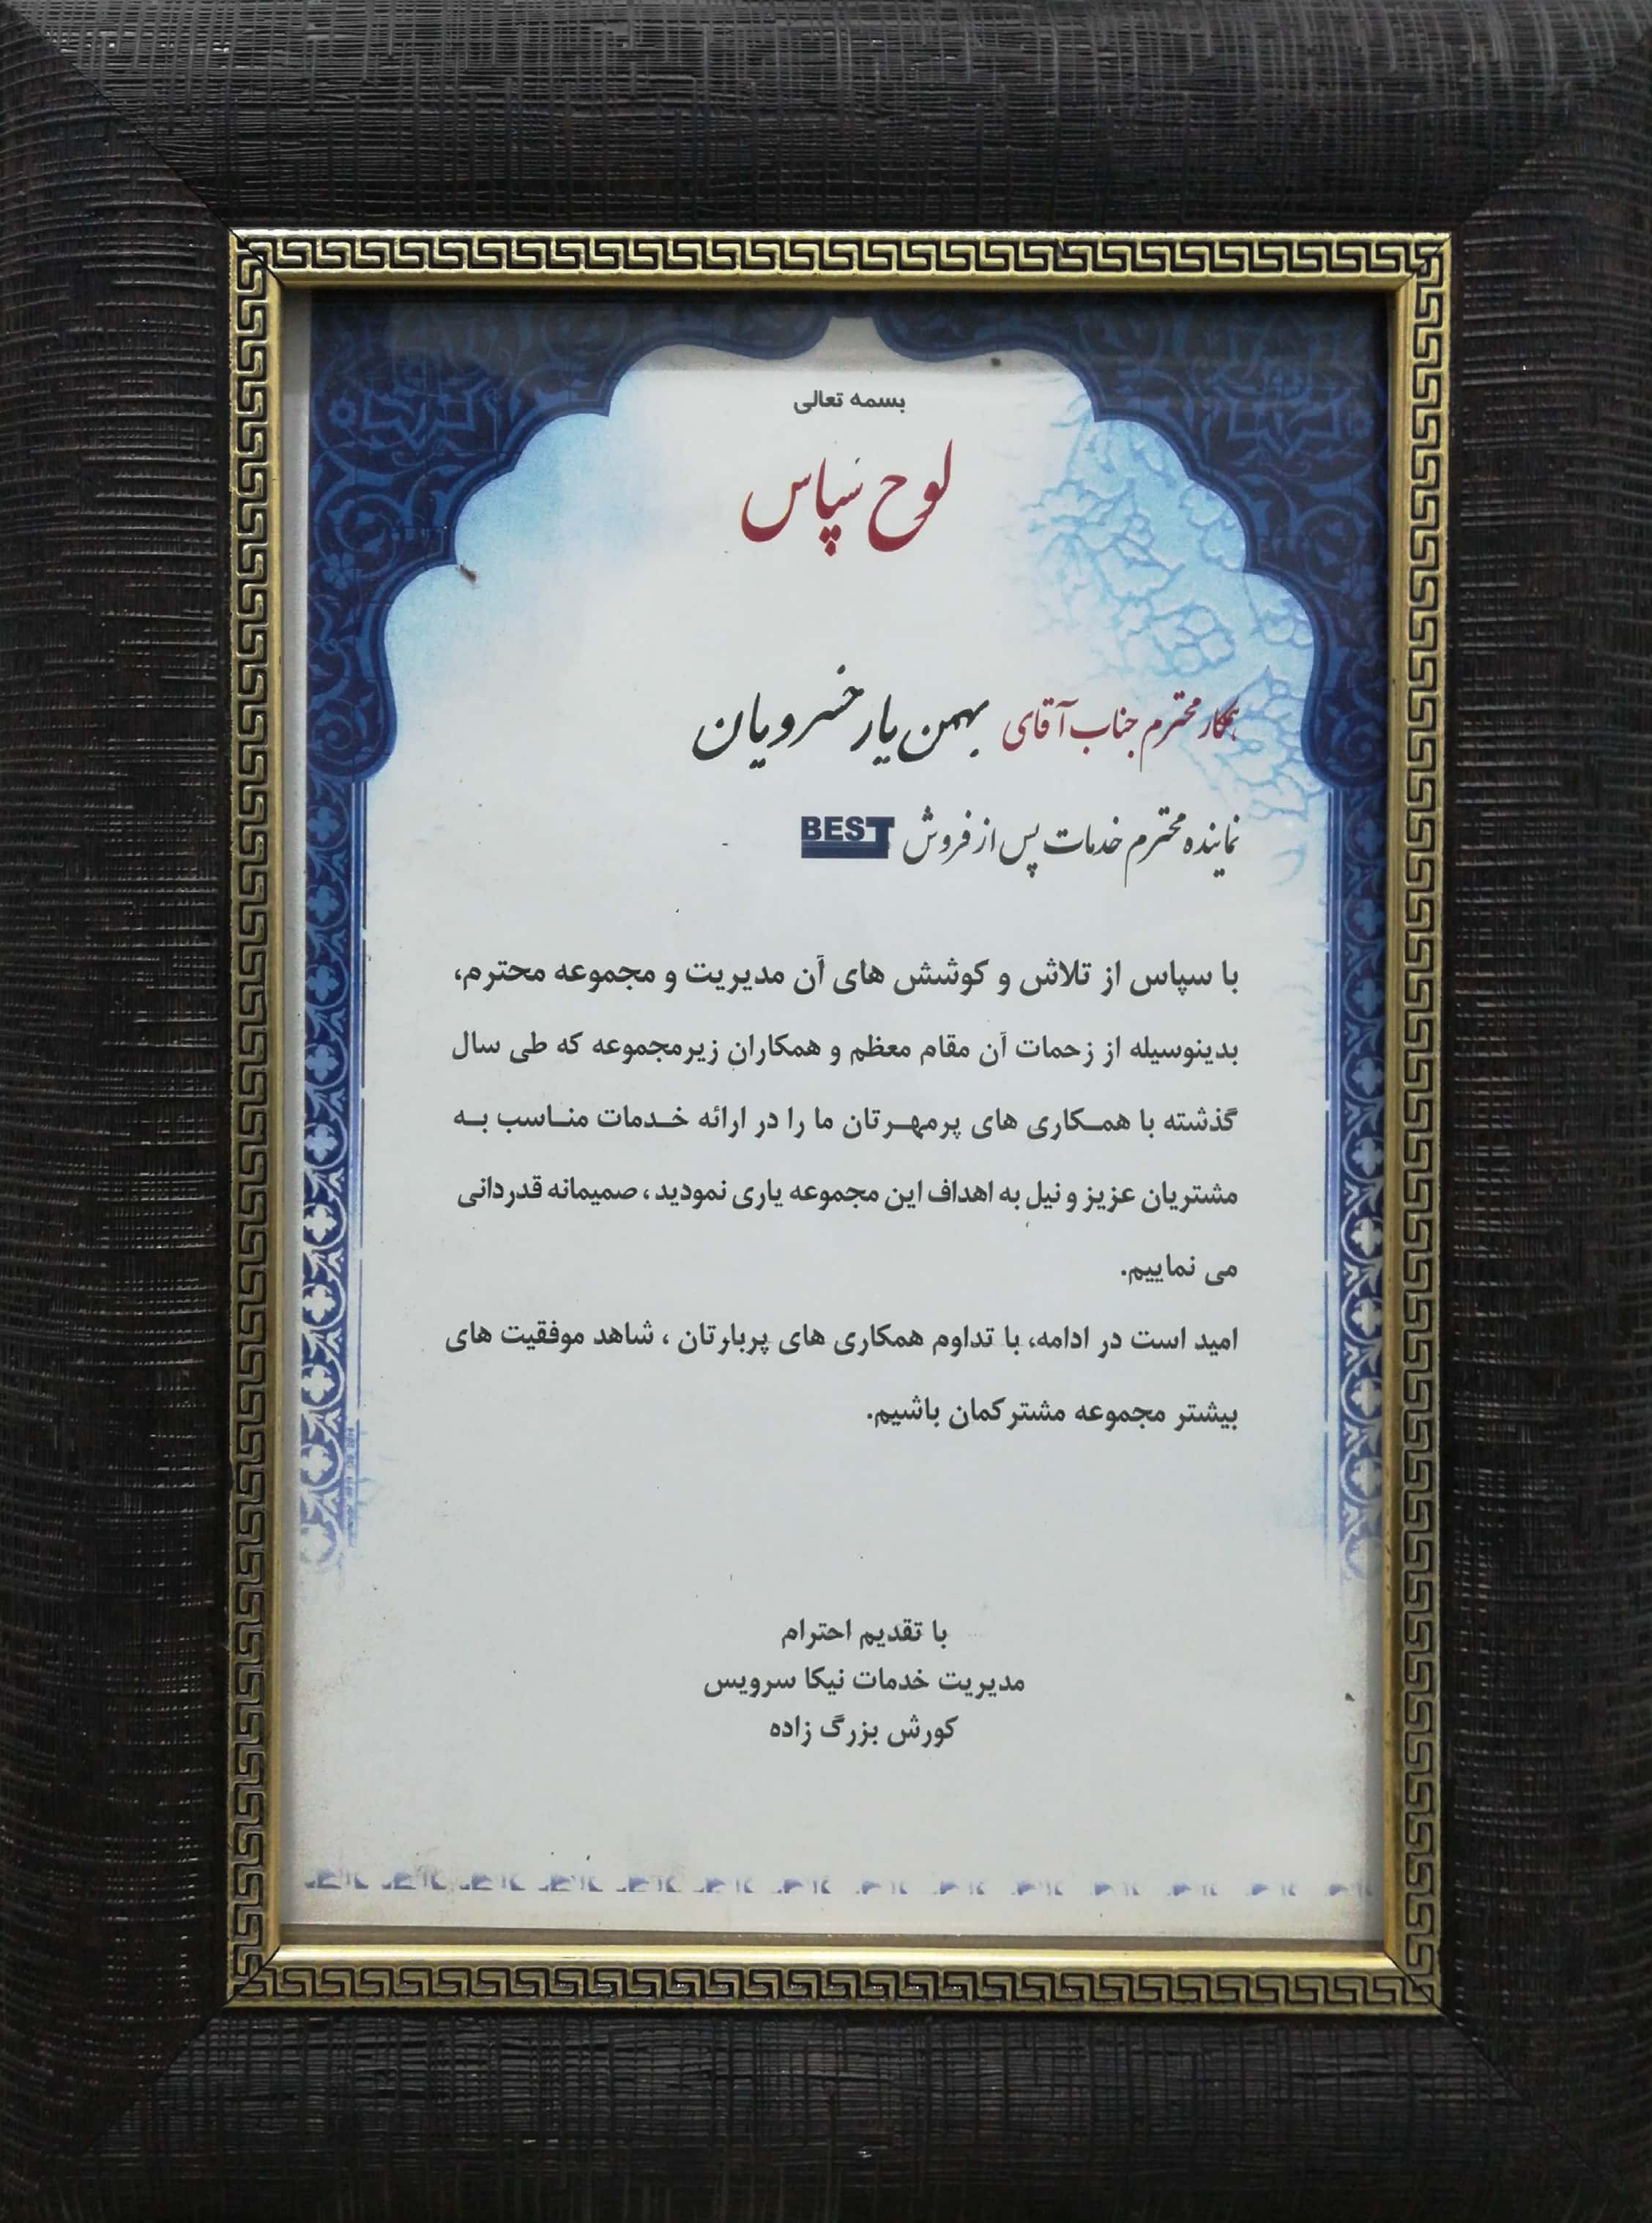 بسمه تعالی
لوح سپاس
همکار محترم جناب آقای بهمن یار خسرویان
نماینده محترم خدمات پس از فروش BEST
با سپاس از تلاش و کوشش های آن مدیریت و مجموعه محترم،
بدینوسیله از زحمات آن مقام معظم و همکاران زیرمجموعه که طی سال
گذشته با همکاری های پرمهرتان ما را در ارائه خدمات مناسب به
مشتریان عزیز و نیل به اهداف این مجموعه یاری نمودید، صمیمانه قدردانی
می نماییم.
امید است در ادامه، با تداوم همکاری های پربارتان ، شاهد موفقیت های
بیشتر مجموعه مشترکمان باشیم.
با تقدیم احترام
مدیریت خدمات نیکا سرویس
کورش بزرگ زاده